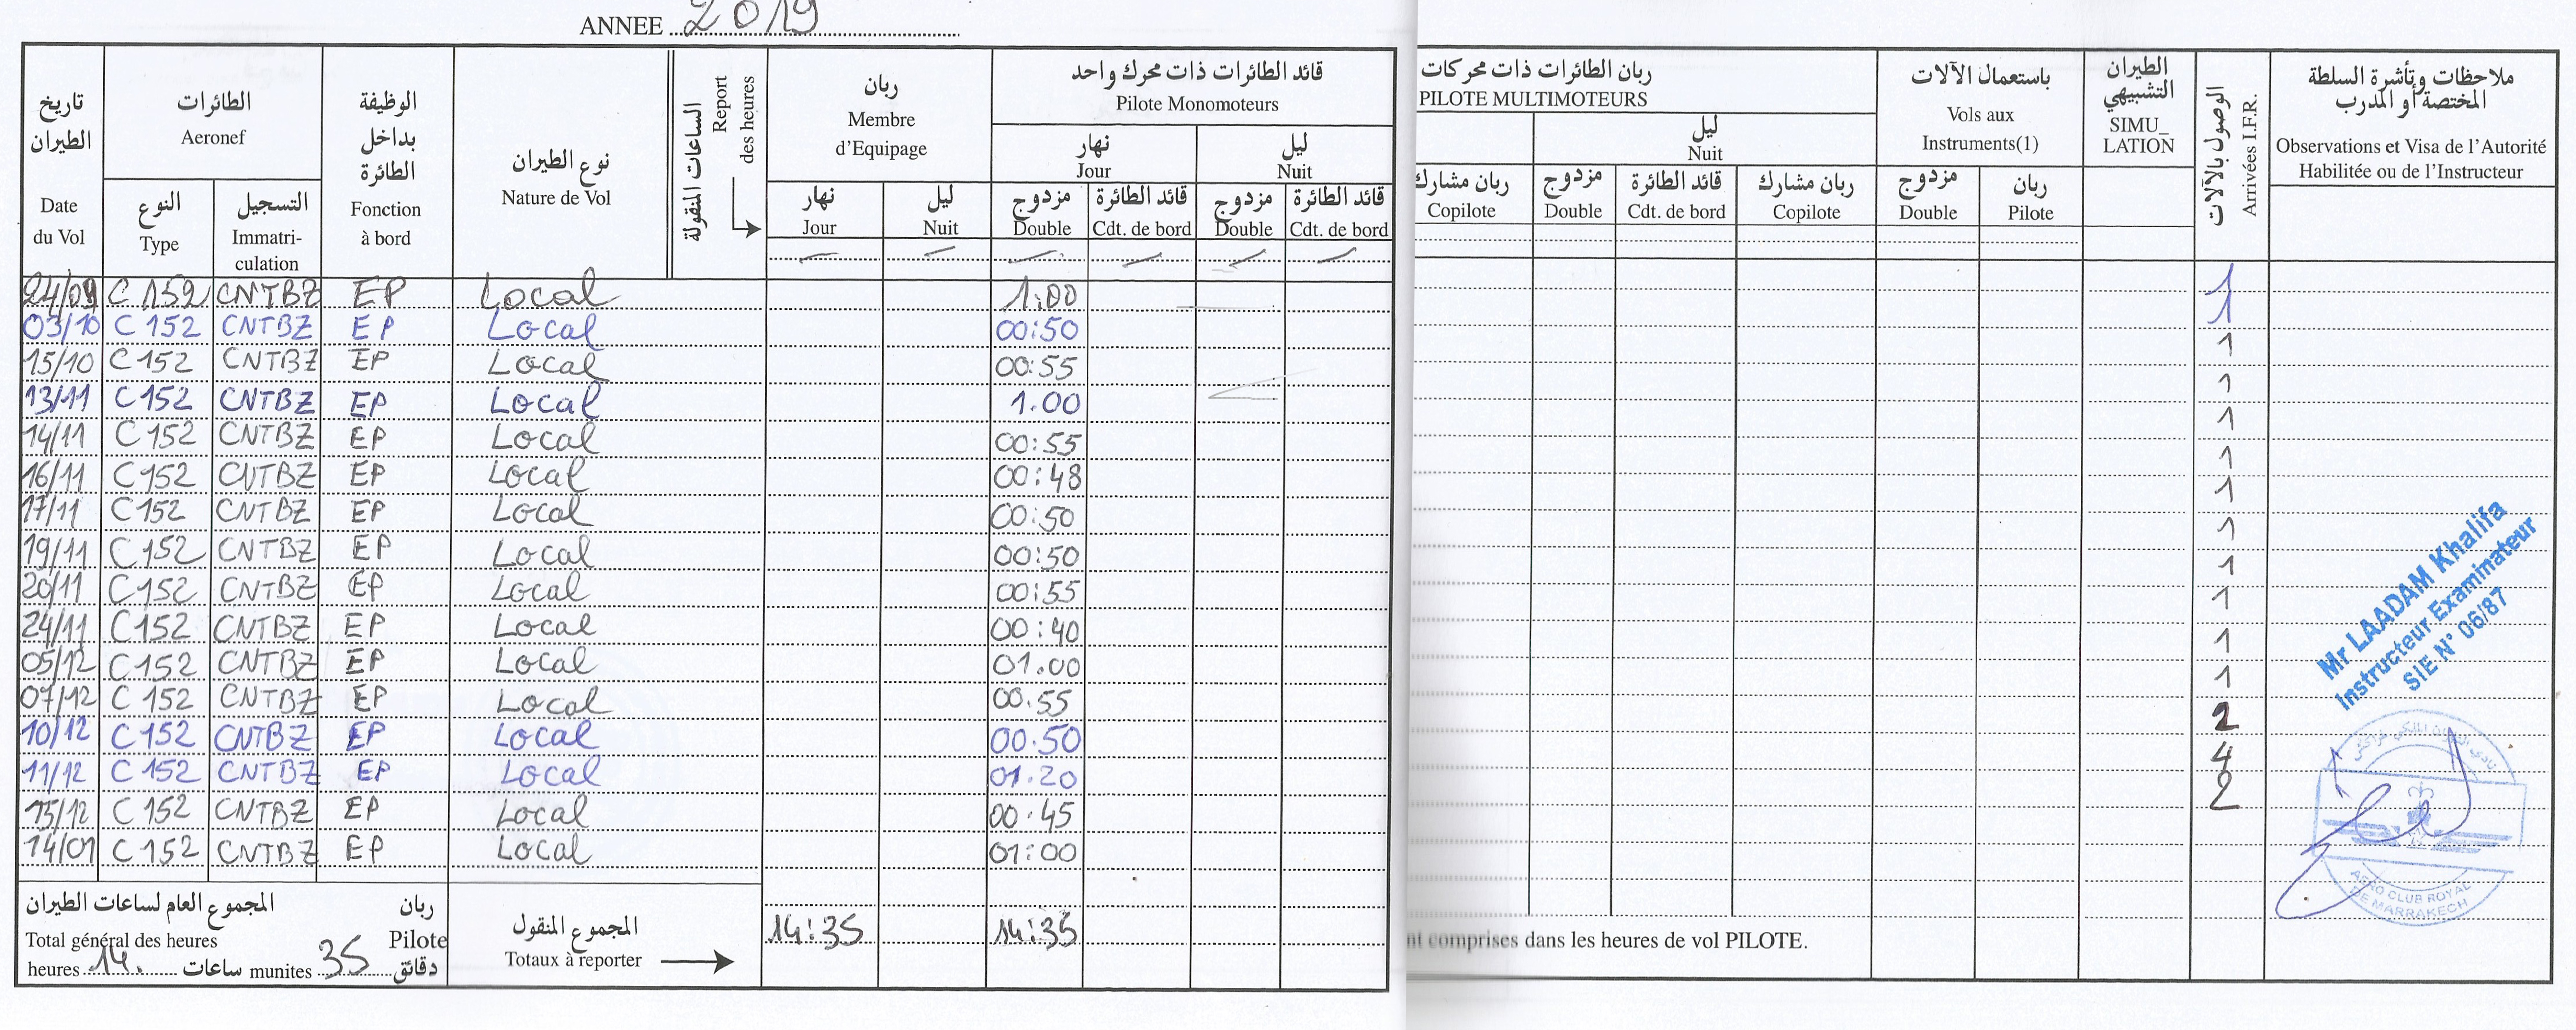 ANNEE 2019
تاريخ الطيران
Date du Vol
الطائرات
Aeronef
النوع
Type
التسجيل
Immatri-
culation
الوظيفة بداخل الطائرة
Fonction à bord
نوع الطيران
Nature de Vol
الساعات المنقولة
Report des heures
ربان
Membre d'Equipage
نهار
Jour
ليل
Nuit
قائد الطائرات ذات محرك واحد
Pilote Monomoteurs
نهار
Jour
ليل
Nuit
مزدوج
Double
قائد الطائرة
Cdt. de bord
مزدوج
Double
قائد الطائرة
Cdt. de bord
ربان الطائرات ذات محركات
PILOTE MULTIMOTEURS
ليل
Nuit
ربان مشارك
Copilote
مزدوج
Double
قائد الطائرة
Cdt. de bord
ربان مشارك
Copilote
باستعمال الآلات
Vols aux
Instruments(1)
مزدوج
Double
ربان
Pilote
الطيران التشبيهي
SIMU_
LATION
الوصول بالآلات
Arrivées I.F.R.
ملاحظات وتأشرة السلطة
المختصة أو المدرب
Observations et Visa de l'Autorité
Habilitée ou de l'Instructeur
24/09 C 152 CNTBZ EP Local 1:00 1
03/10 C 152 CNTBZ EP Local 00:50 1
15/10 C 152 CNTBZ EP Local 00:55 1
13/11 C 152 CNTBZ EP Local 1.00 1
14/11 C 152 CNTBZ EP Local 00:55 1
16/11 C 152 CNTBZ EP Local 00:48 1
17/11 C 152 CNTBZ EP Local 00:50 1
19/11 C 152 CNTBZ EP Local 00:50 1
20/11 C 152 CNTBZ EP Local 00:55 1
24/11 C 152 CNTBZ EP Local 00:40 1
05/12 C 152 CNTBZ EP Local 01.00 1
07/12 C 152 CNTBZ EP Local 00.55 1
10/12 C 152 CNTBZ EP Local 00.50 2
11/12 C 152 CNTBZ EP Local 01.20 4
15/12 C 152 CNTBZ EP Local 00.45 2
14/01 C 152 CNTBZ EP Local 01:00
Mr LAADAM Khalifa
Instructeur Examinateur
SIE N° 06/87
AERO CLUB ROYAL
DE MARRAKECH
المجموع العام لساعات الطيران ربان
Total général des heures Pilote
heures 14. ساعات munites 35 دقائق
المجموع المنقول
Totaux à reporter
14:35 14:35
nt comprises dans les heures de vol PILOTE.